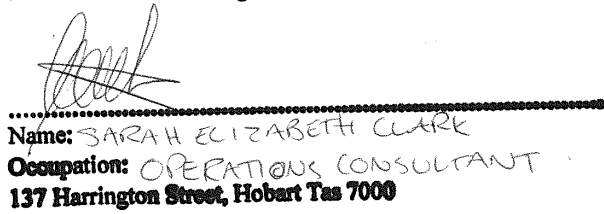 Name: SARAH ELIZABETH CLARK
Occupation: OPERATIONS CONSULTANT
137 Harrington Street, Hobart Tas 7000